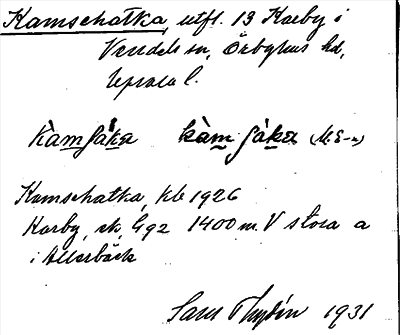 Kamschatka, utfl. 13 Karby i
Vendels sn, Örbyhus hd,
Uppsala l.
kàmʃáka kàm ʃáka (M.E-n)
Kamschatka, kb 1926
Karby, sk, G92 1400 m. V stora a
i Allerbäck
Sam Thydén 1931